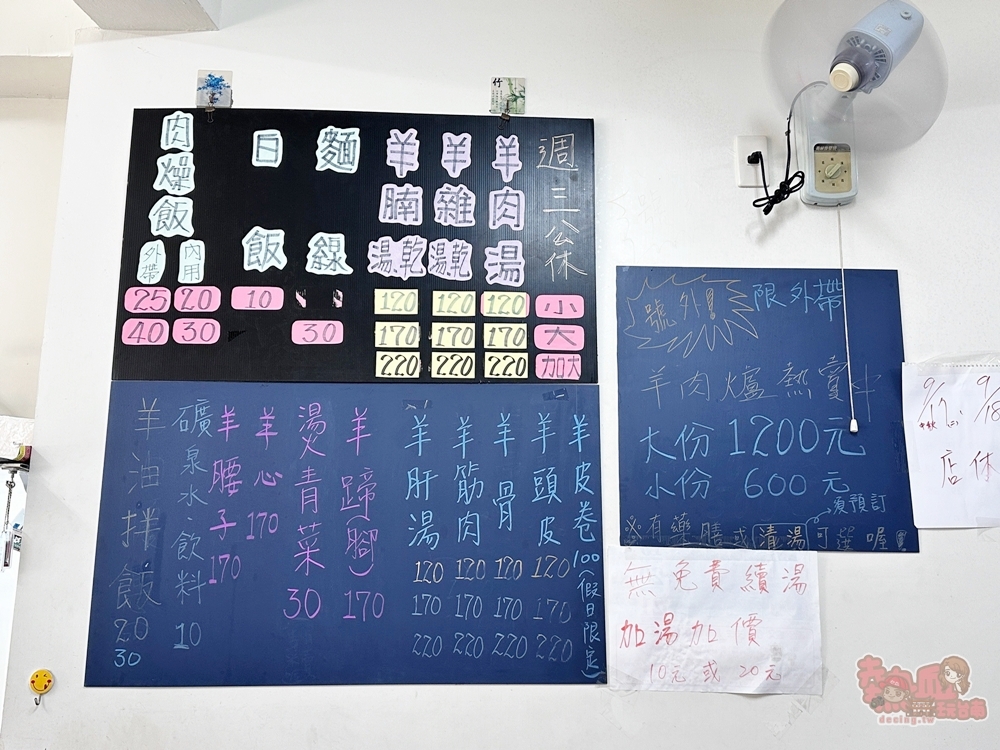 週三公休
羊肉湯
120 小
170 大
220 加大
羊雜湯、乾
120
170
220
羊腩湯、乾
120
170
220
麵線
30
白飯
10
肉燥飯
內用
20
30
外帶
25
40
羊皮卷100(假日限定)
羊頭皮
120
170
220
羊骨
120
170
220
羊筋肉
120
170
220
羊肝湯
120
170
220
羊蹄(腳)170
燙青菜30
羊心170
羊腰子170
礦泉水、飲料10
羊油拌飯
20
30
號外! 限外帶
羊肉爐熱賣中
大份1200元
小份 600元
須預訂
※有藥膳或清湯可選喔!
9/17 9/18
店休
無免費續湯
加湯加價
10元 或 20元
竹
熱血玩台南
decing.tw